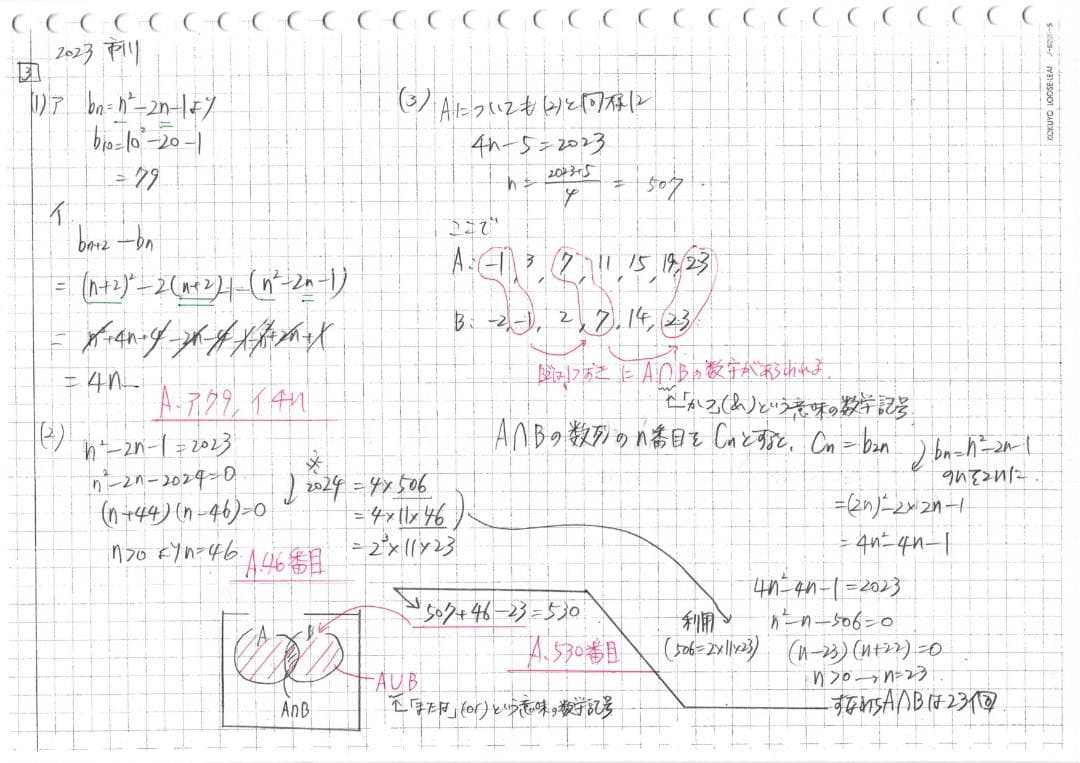 2023 市川
3
(1) ア bn=n²-2n-1より
b10=10²-20-1
=79
イ
bn+2-bn
=(n+2)²-2(n+2)-1-(n²-2n-1)
=n²+4n+4-2n-4-1-n²+2n+1
=4n
A.ア79, イ4n
(2)
n²-2n-1=2023
n²-2n-2024=0
(n+44)(n-46)=0
n>0よりn=46
A.46番目
※
2024=4×506
=4×11×46
=2³×11×23
(3) Aについても(2)と同様に
4n-5=2023
n=(2023+5)/4=507.
ここで
A:-1, 3, 7, 11, 15, 19, 23
B:-2, -1, 2, 7, 14, 23
1つおきにA∩Bの数字があらわれる
↑「かつ(&)」という意味の数学記号
A∩Bの数列のn番目をCnとすると, Cn=b2n
bn=n²-2n-1
のnを2nに.
=(2n)²-2×2n-1
=4n²-4n-1
4n²-4n-1=2023
n²-n-506=0
(n-23)(n+22)=0
n>0→n=23
すなわちA∩Bは23個
利用
(506=2×11×23)
507+46-23=530
A.530番目
A
B
A∩B
A∪B
↑「または」(or)という意味の数学記号
KOKUYO LOOSE-LEAF